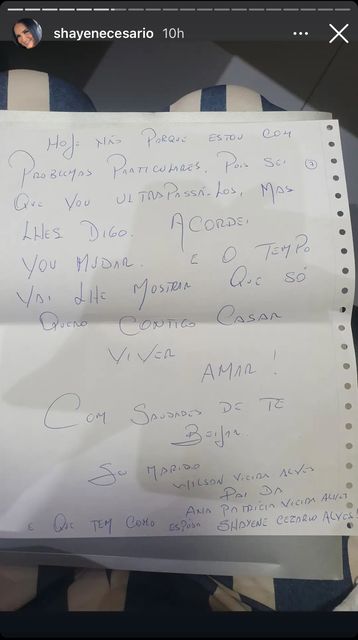 shayenecesario 10h
HOJE NÃO PORQUE ESTOU COM
PROBLEMAS PARTICULARES. POIS SEI
3
QUE VOU ULTRAPASSÁ-LOS, MAS
LHES DIGO. ACORDEI
VOU MUDAR. E O TEMPO
VAI LHE MOSTRAR QUE SÓ
QUERO CONTIGO CASAR
VIVER
AMAR!
COM SAUDADES DE TE
BEIJAR.
SEU MARIDO
WILSON VIEIRA ALVES
PAI DA
ANA PATRICIA VIEIRA ALVES
E QUE TEM COMO ESPOSA SHAYENE CEZARIO ALVES!